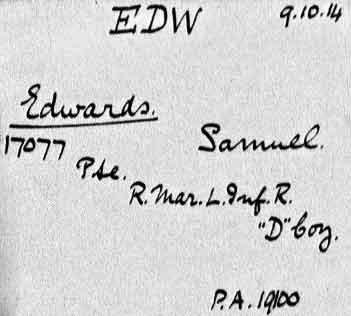 EDW 9.10.14
Edwards.
17077 Samuel.
Pte.
R. Mar. L. Inf. R.
"D" Coy.
P.A. 19100